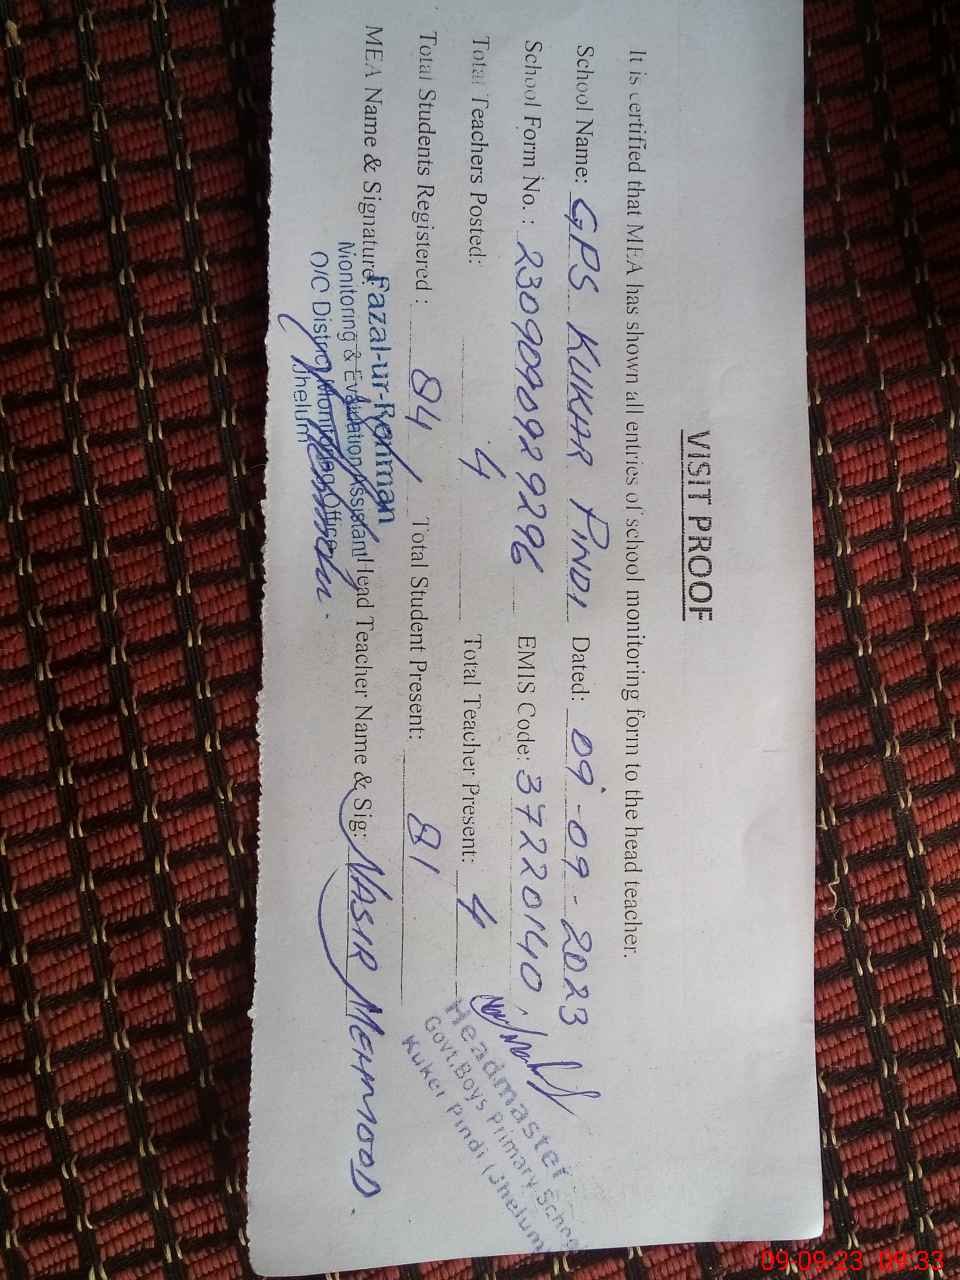 VISIT PROOF
It is certified that MEA has shown all entries of school monitoring form to the head teacher.
School Name: GPS KUKHAR PINDI Dated: 09-09-2023
School Form No. : 23090909929296 EMIS Code: 37220140
Total Teachers Posted: 4 Total Teacher Present: 4
Total Students Registered : 84 Total Student Present: 81
MEA Name & Signature: Head Teacher Name & Sig: NASIR MEHMOOD.
Fazal-ur-Rehman
Monitoring & Evaluation Assistant
O/C District Monitoring Officer
Jhelum
Headmaster
Govt.Boys Primary School
Kuker Pindi (Jhelum
09-09-23 09:33